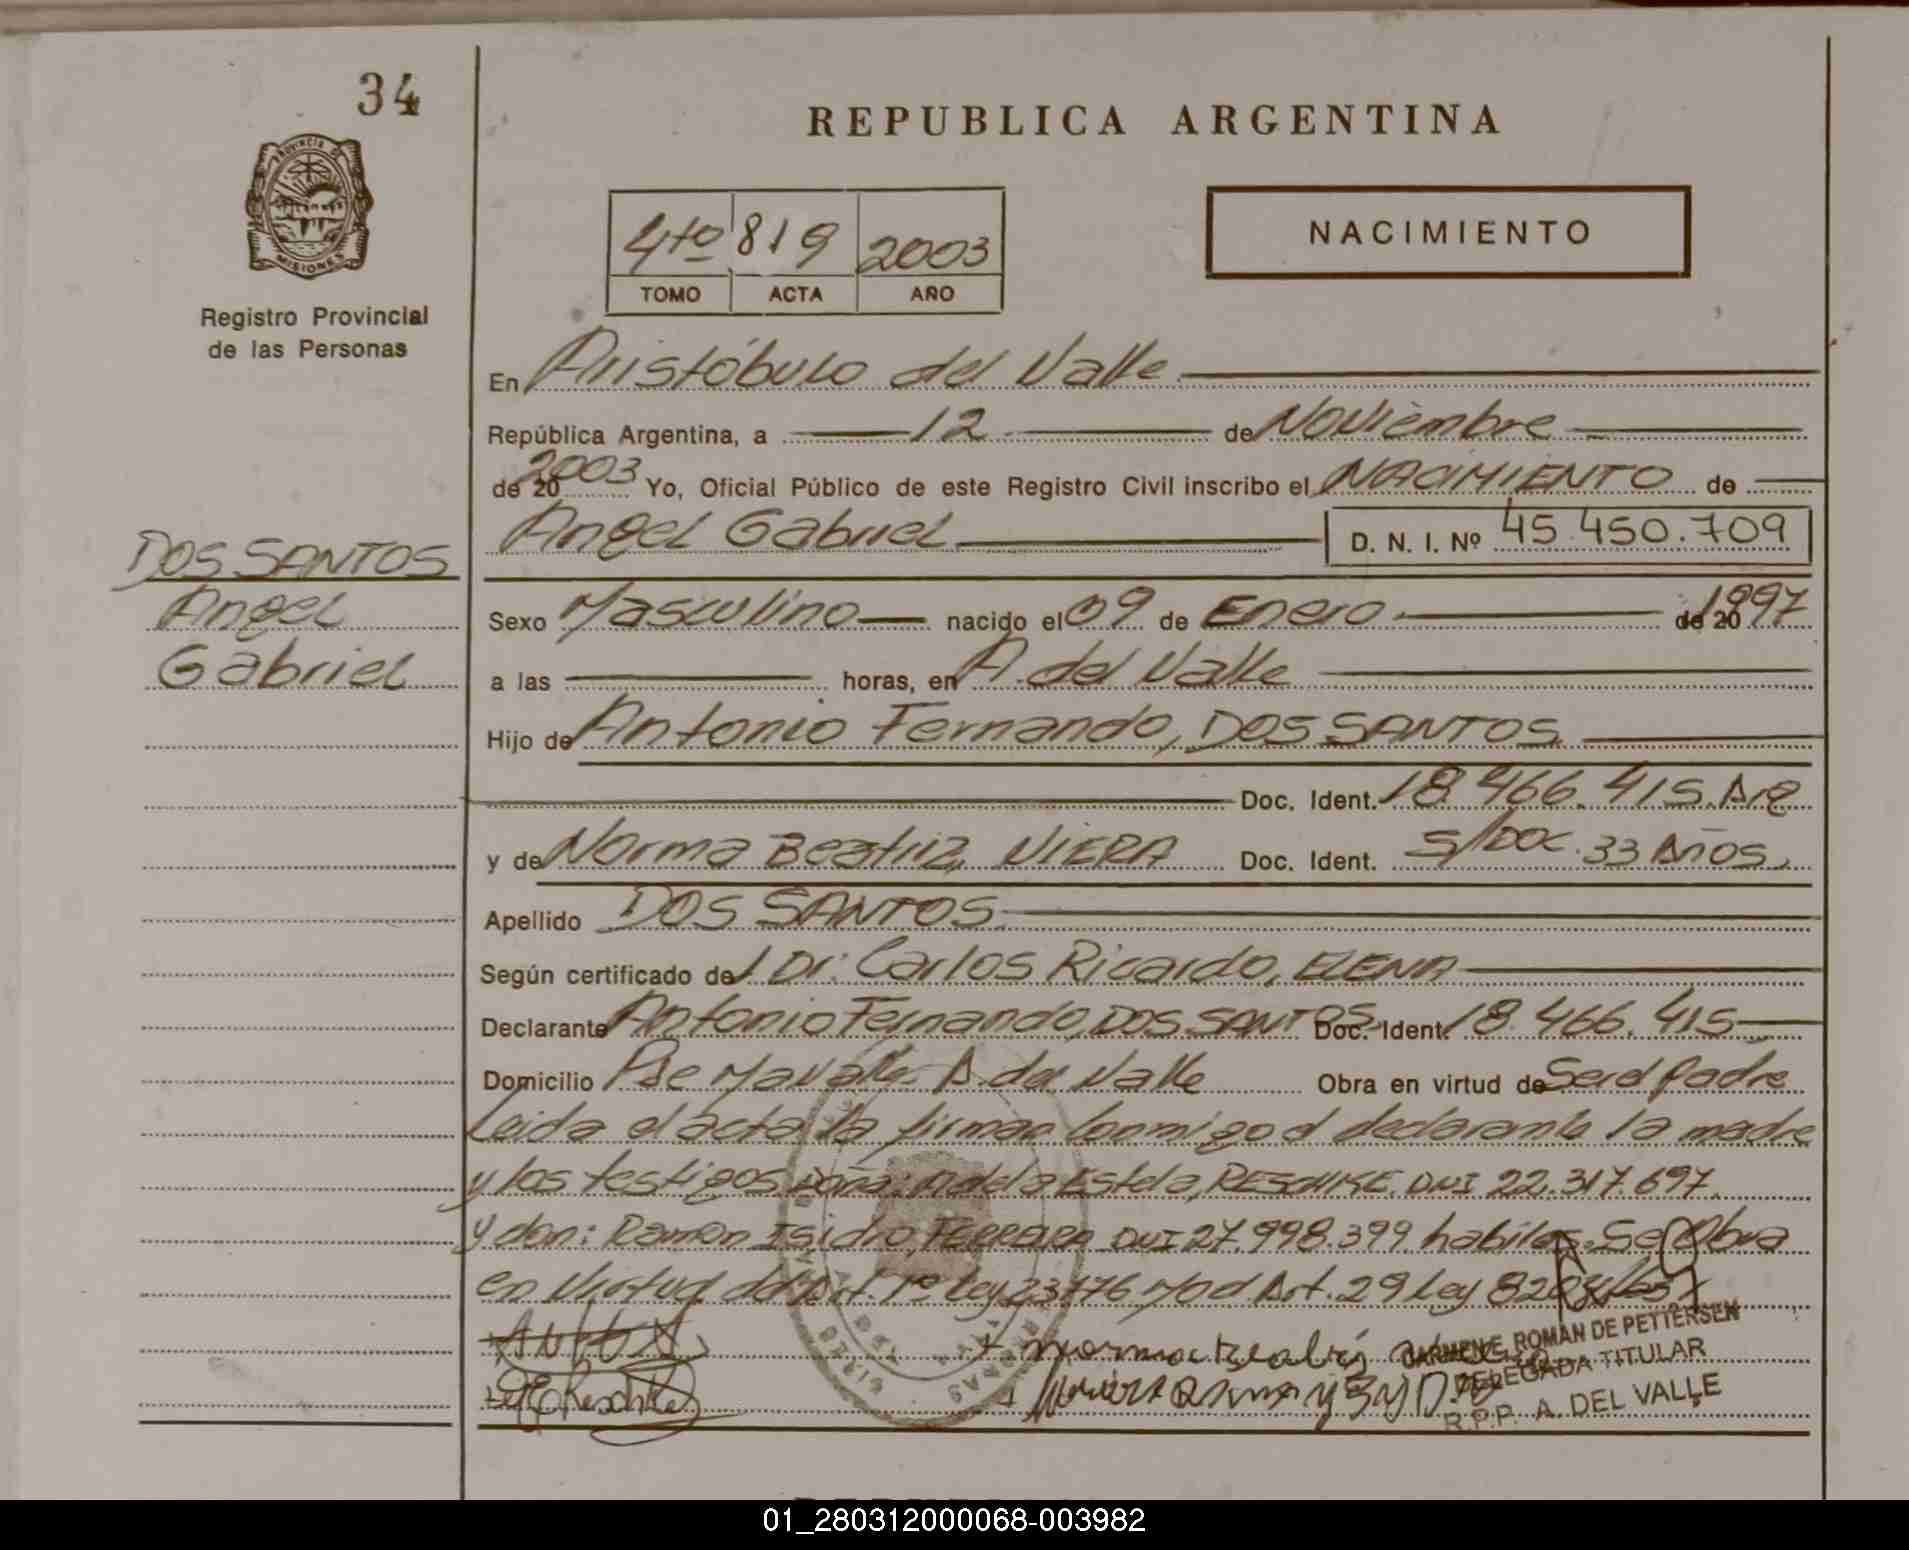 34
REPUBLICA ARGENTINA
PROVINCIA DE
MISIONES
Registro Provincial
de las Personas
4to 819 2003
TOMO ACTA AÑO
NACIMIENTO
En Aristóbulo del Valle
República Argentina, a 12 de Noviembre
de 20 2003 Yo, Oficial Público de este Registro Civil inscribo el NACIMIENTO de
Angel Gabriel D. N. I. Nº 45.450.709
DOS SANTOS
Angel
Gabriel
Sexo Masculino nacido el 09 de Enero de 20 1997
a las horas, en A. del Valle
Hijo de Antonio Fernando, DOS SANTOS
Doc. Ident. 18.466.415. Arg
y de Norma Beatriz, VIERA Doc. Ident. S/DOC. 33 Años.
Apellido DOS SANTOS
Según certificado de Dr: Carlos Ricardo, ELENA
Declarante Antonio Fernando, DOS SANTOS Doc. Ident. 18.466.415
Domicilio A. del Valle Obra en virtud de Ser el padre
Leida el acta la firman conmigo el declarante la madre
y los testigos Doña: Estela, RESCHKE. DNI 22.317.697.
y don: Ramon Isidro, FERREIRA DNI 27.998.399. habiles. Se Obra
en Virtud del Art. 1º Ley 23.776 mod Art. 29 Ley
CARMEN E. ROMAN DE PETTERSEN
DELEGADA TITULAR
R.P.P. A. DEL VALLE
01_280312000068-003982